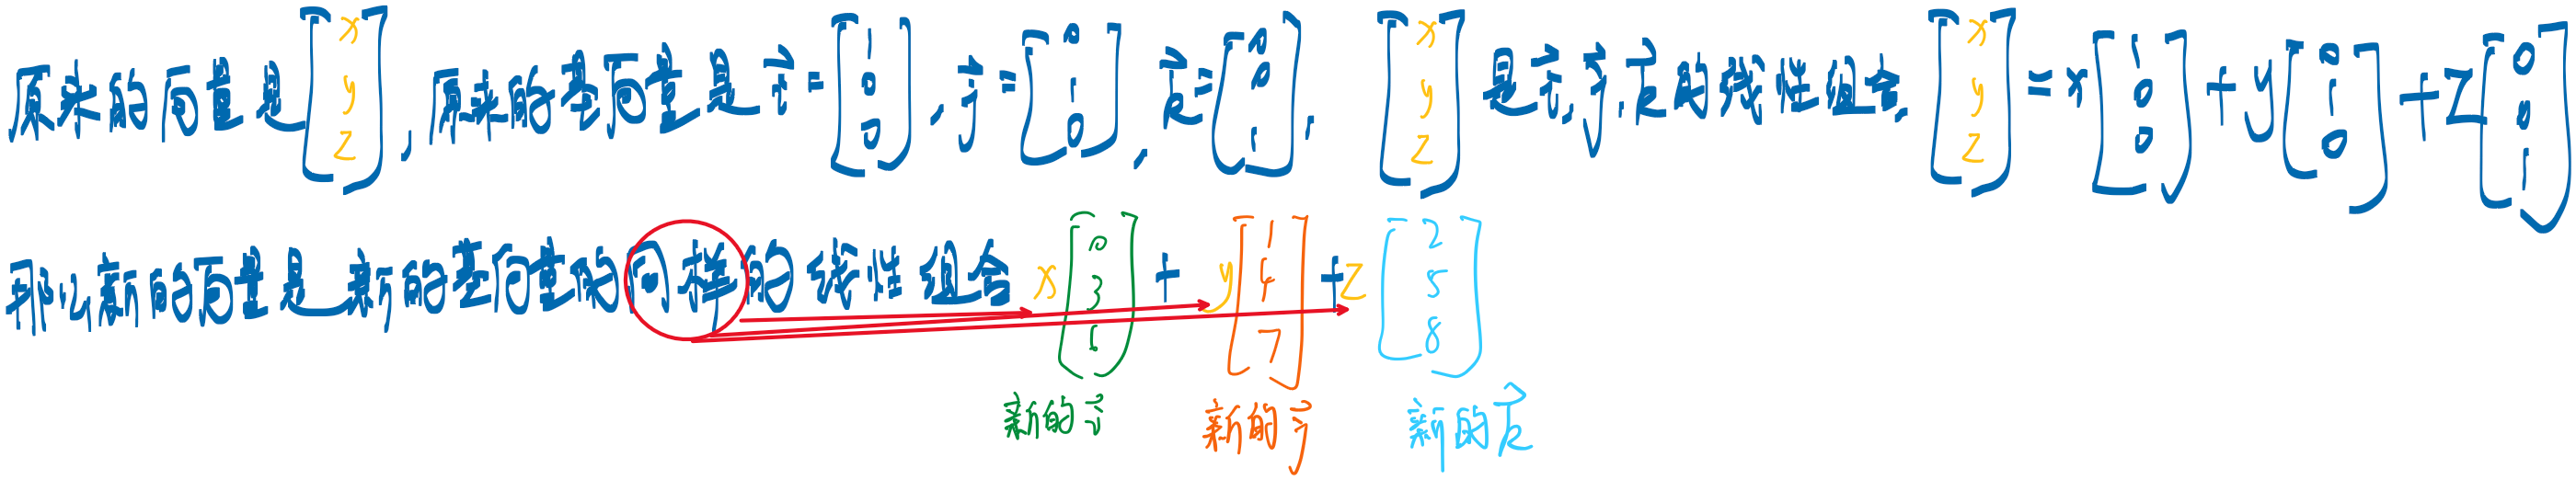 原来的向量是[x y z], 原来的基向量是 i⃗=[1 0 0], j⃗=[0 1 0], k⃗=[0 0 1], [x y z] 是i⃗, j⃗, k⃗的线性组合, [x y z]=x[1 0 0]+y[0 1 0]+z[0 0 1]
那么新的向量是 新的基向量的同样的线性组合 x[0 3 6]+y[1 4 7]+z[2 5 8]
新的i⃗ 新的j⃗ 新的k⃗